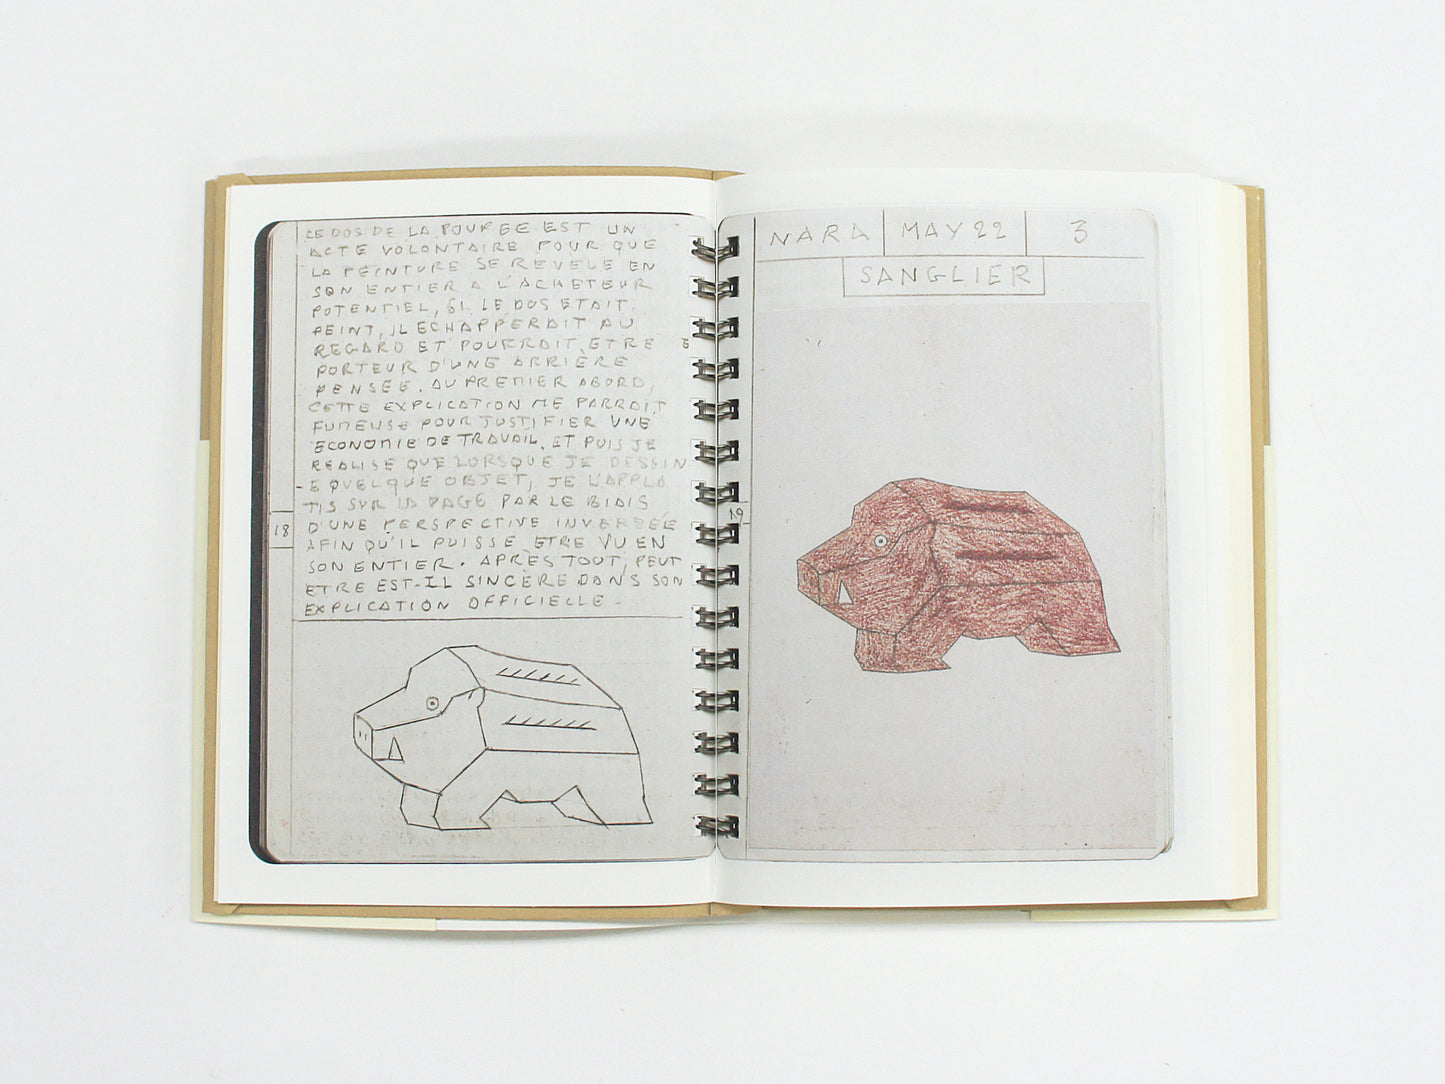 LE DOS DE LA POUPEE EST UN
ACTE VOLONTAIRE POUR QUE
LA PEINTURE SE REVELE EN
SON ENTIER A L'ACHETEUR
POTENTIEL, SI LE DOS ETAIT
PEINT, IL ECHAPPERAIT AU
REGARD ET POURRAIT ETRE
PORTEUR D'UNE ARRIÈRE
PENSÉE. AU PREMIER ABORD,
CETTE EXPLICATION ME PARRAIT
FUMEUSE POUR JUSTIFIER UNE
ECONOMIE DE TRAVAIL. ET PUIS JE
REALISE QUE LORSQUE JE DESSIN
E QUELQUE OBJET, JE L'APPLA
TIS SUR LA PAGE PAR LE BIAIS
D'UNE PERSPECTIVE INVERSÉE
AFIN QU'IL PUISSE ETRE VU EN
SON ENTIER. APRÈS TOUT, PEUT
ETRE EST-IL SINCÈRE DANS SON
EXPLICATION OFFICIELLE -
18
NARA MAY 22 3
SANGLIER
19